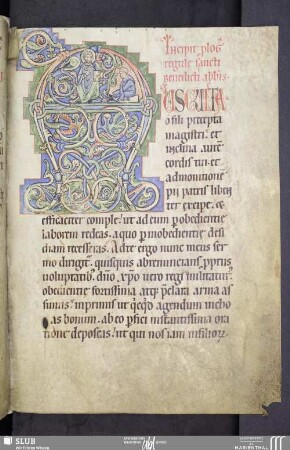 Incipit plog
regule sancti
benedicti abbis.
AUSCULTA
o fili precepta
magistri. et
inclina aurē
cordis tui. et
admonitionē
pii patris liben
ter excipe. et
efficaciter comple. ut ad eum p obedientie
laborem redeas. a quo p inobedientie desi
diam recesseras. Ad te ergo nunc meus ser
mo dirigit. quisquis abrenuntians pprus
voluptatib; dn̄o xp̄o vero regi militatur
obedientie fortissima atq; pclara arma as
sumis. Inprimis ut qcqd agendum incho
as bonum. ab eo pfici instantissima ora
tione deposcas. ut qui nos iam in filiorꝝ
SLUB
Wir führen Wissen.
MARIENTHAL